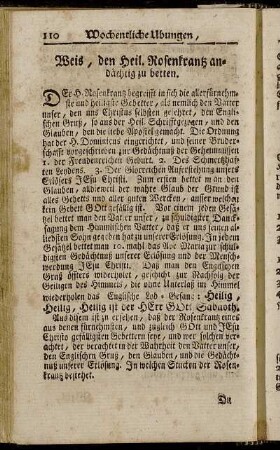 110 Wochentliche Ubungen,
Weis, den Heil. Rosenkrantz an-
dächtig zu betten.
DEr H. Rosenkrantz begreifft in sich die allerfürnehm-
ste und heiligste Gebetter, als nemlich den Vatter
unser, den uns Christus selbsten gelehret, den Engli-
schen Gruß, so aus der Heil. Schrifft gezogen, und den
Glauben, den die liebe Apostel gemacht. Die Ordnung
hat der H. Dominicus eingerichtet, und seiner Bruder-
schafft vorgeschrieben zur Gedächtnuß der Geheimnussen
1. der Freudenreichen Geburt. 2. Des Schmertzhaff-
ten Leydens. 3. Der Glorreichen Auferstehung unsers
Erlösers JEsu Christi. Zum ersten bettet man den
Glauben, dieweil der wahre Glaub der Grund ist
alles Gebetts und aller guten Wercken, ausser welchem
kein Gebett GOtt gefällig ist. Vor einem jeden Ge-
sätzel bettet man den Vatter unser, zu schuldigster Danck-
sagung dem Himmlischen Vatter, daß er uns seinen all-
liebsten Sohn gegeben hat zu unserer Erlösung. In jedem
Gesätzel bettet man 10. mahl das Ave Maria zur schul-
digsten Gedächtnuß unserer Erlösung und der Mensch-
werdung JEsu Christi. Daß man den Englischen
Gruß öffters widerholet, geschicht zur Nachfolg der
Heiligen des Himmels, die ohne Unterlaß im Himmel
wiederholen das Englische Lob-Gesang: Heilig,
Heilig, Heilig ist der HErr GOtt Sabaoth.
Aus disem ist zu ersehen, daß der Rosenkrantz eines
aus denen fürnehmsten, und zugleich GOtt und JEsu
Christo gefälligsten Gebettern seye, und wer solchen verach-
tet, der verachtet in der Wahrheit den Vatter unser,
den Englischen Gruß, den Glauben, und die Gedächt-
nuß unserer Erlösung. In welchen Stucken der Rosen-
krantz bestehet.
Die